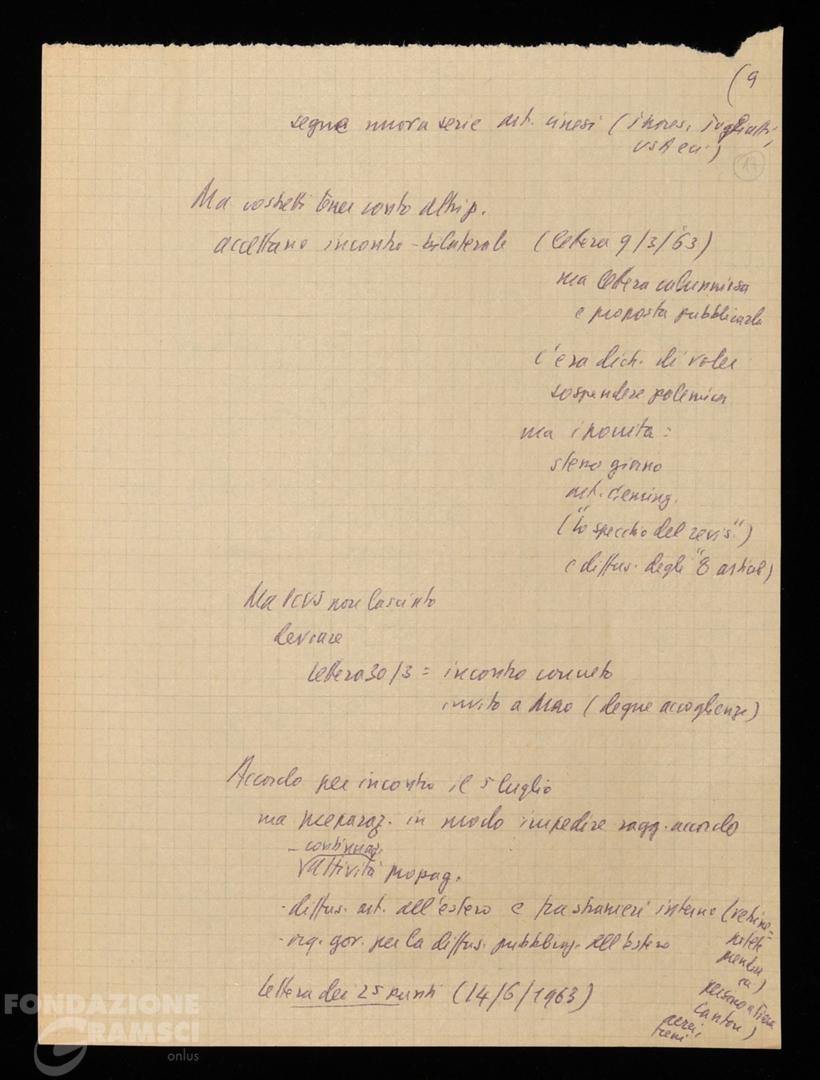 (9
segue nuova serie art. cinesi (Thores, Togliatti,
USA ecc.)
17
Ma costretti tener conto altri p.
accettano incontro bilaterale (lettera 9/3/63)
ma lettera calunniosa
e proposta pubblicarla
c'era dich. di voler
sospendere polemica
ma ipocrita:
stesso giorno
art. Gemming.
("Lo specchio del revis.")
e diffus. degli "8 articoli)
Ma PCUS non lasciato
deviare
lettera 30/3 = incontro concreto
invito a Mao (degne accoglienze)
Accordo per incontro il 5 luglio
ma preparaz. in modo impedire ragg. accordo
- continuaz.
attività propag.
- diffus. art. all'estero e tra stranieri interno (vetrine
hotels
mensa
ecc.)
persino a Fiera
Canton)
aerei,
treni
- org. gov. per la diffus. pubblicaz. all'Estero
lettera dei 25 punti (14/6/1963)
FONDAZIONE
GRAMSCI
onlus